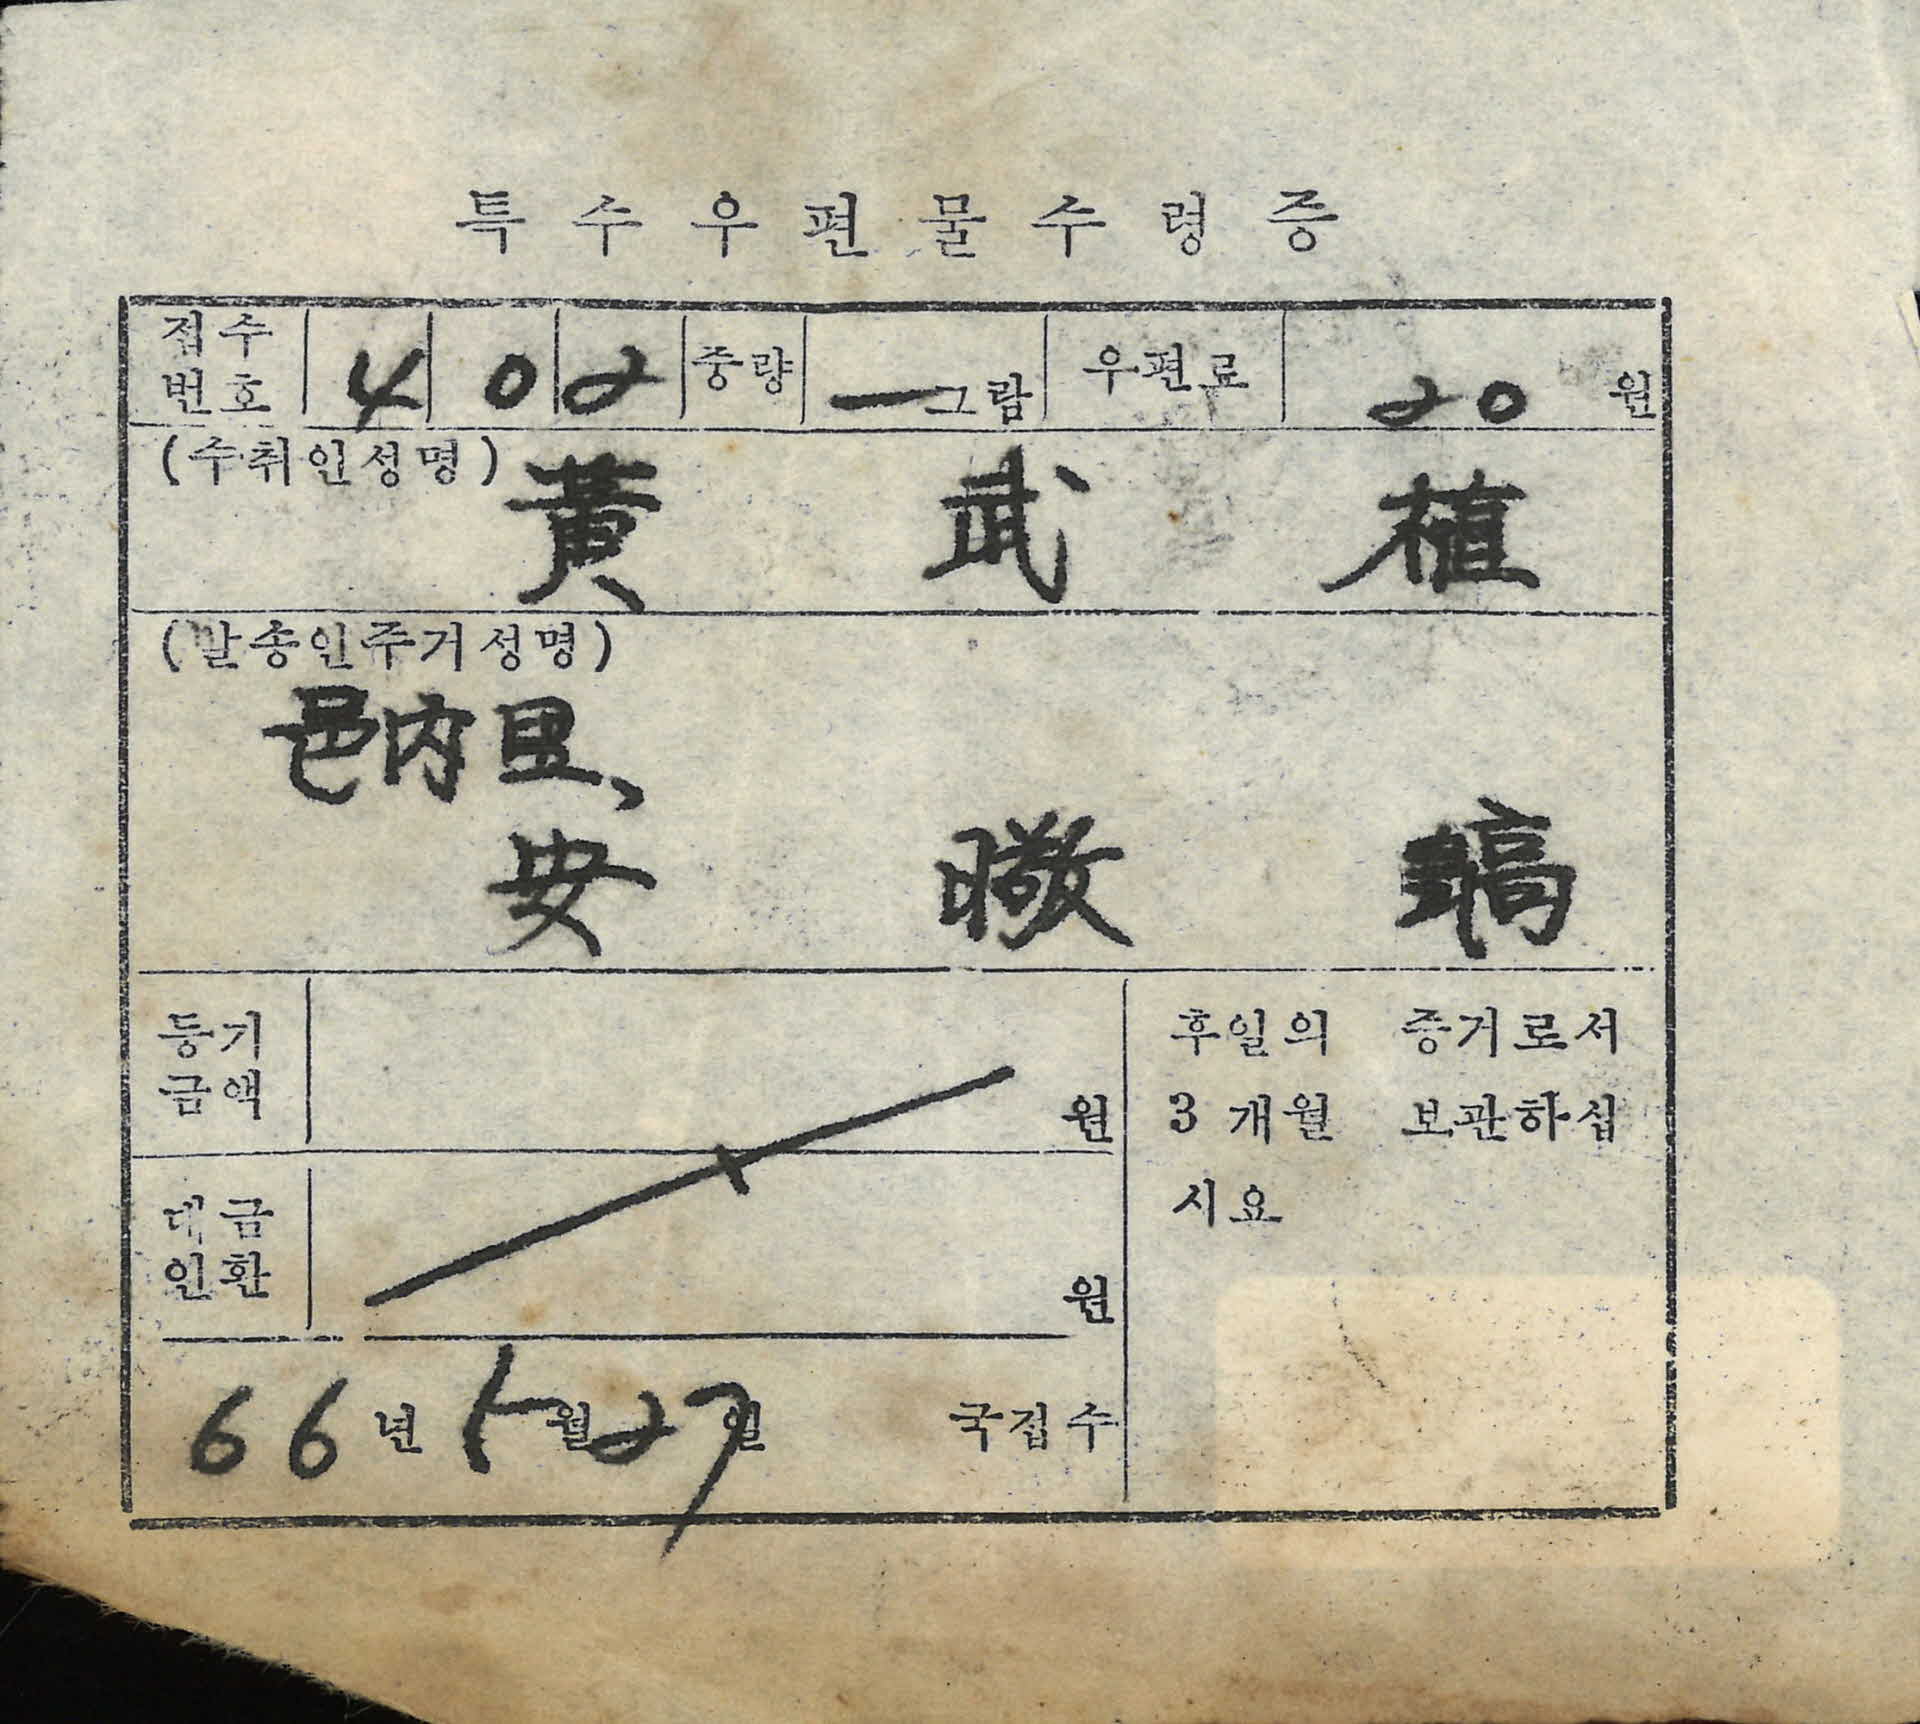 특수우편물수령증
접수번호 402 중량 — 그람 우편료 20 원
(수취인성명)
黃武植
(발송인주거성명)
邑內里、
安 鎬
등기금액 원
대금인환 원
66년 5월 27일 국접수
후일의 증거로서
3개월 보관하십
시요